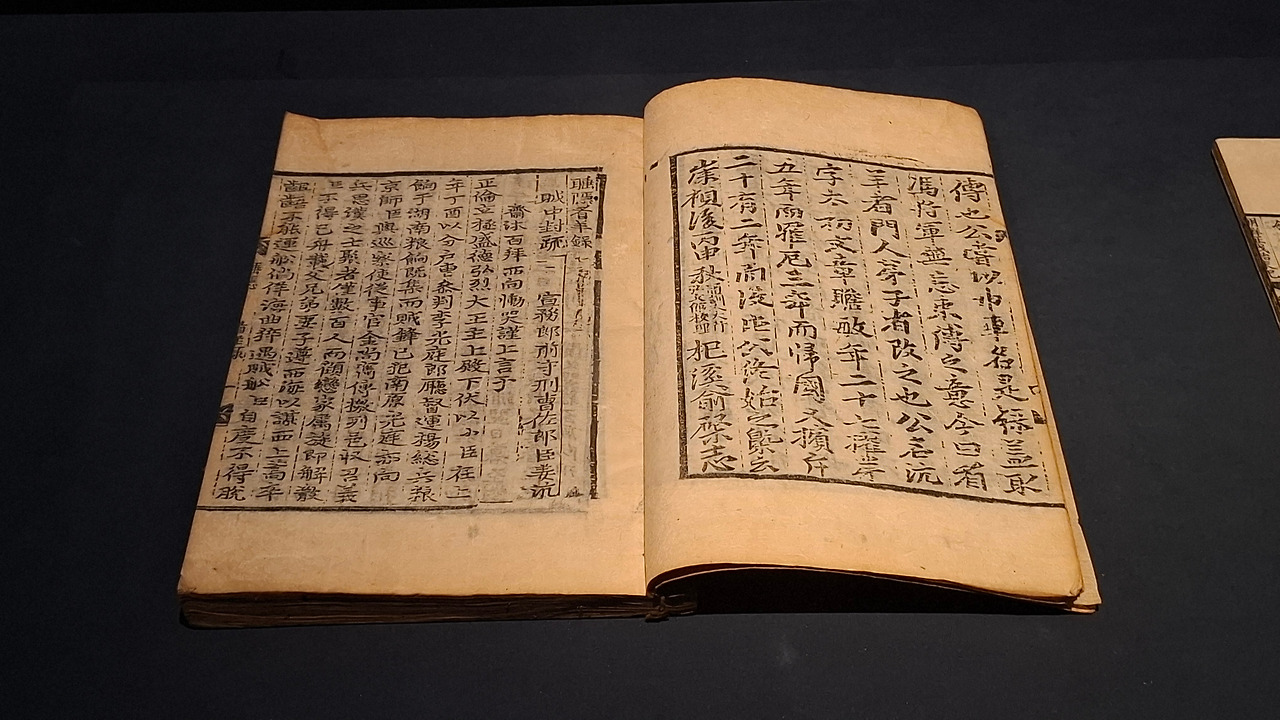 傳也公嘗以巾車名是錄盖取
馮將軍無忘束縛之意今曰看
羊者門人弟子者改之也公名沆
字太初文章贍敏年二十七擢第
五年而罹厄三年而歸國又擯斥
二十有二年而沒此公終始之槩云
崇禎後丙申秋杞溪兪棨志
睡隱看羊錄
賊中封疏
宣務郎前守刑曹佐郎臣姜沆
齋沐百拜西向慟哭謹上言于
正倫立極盛德弘烈大王主上殿下伏以小臣在上
年丁酉以分戶曹叅判李光庭郎廳督運楊總兵粮
餉于湖南粮餉旣集而賊鋒已犯南原光庭亦向
京師臣與巡察使從事官金尙寯傳檄列邑收召義
兵思漢之士聚者僅數百人而顧戀家屬旋卽解散
臣不得已舟載父兄弟妻子遵西海以謀西上篙卒
齟齬不能運船徜徉海曲猝遇賊船臣自度不得脫